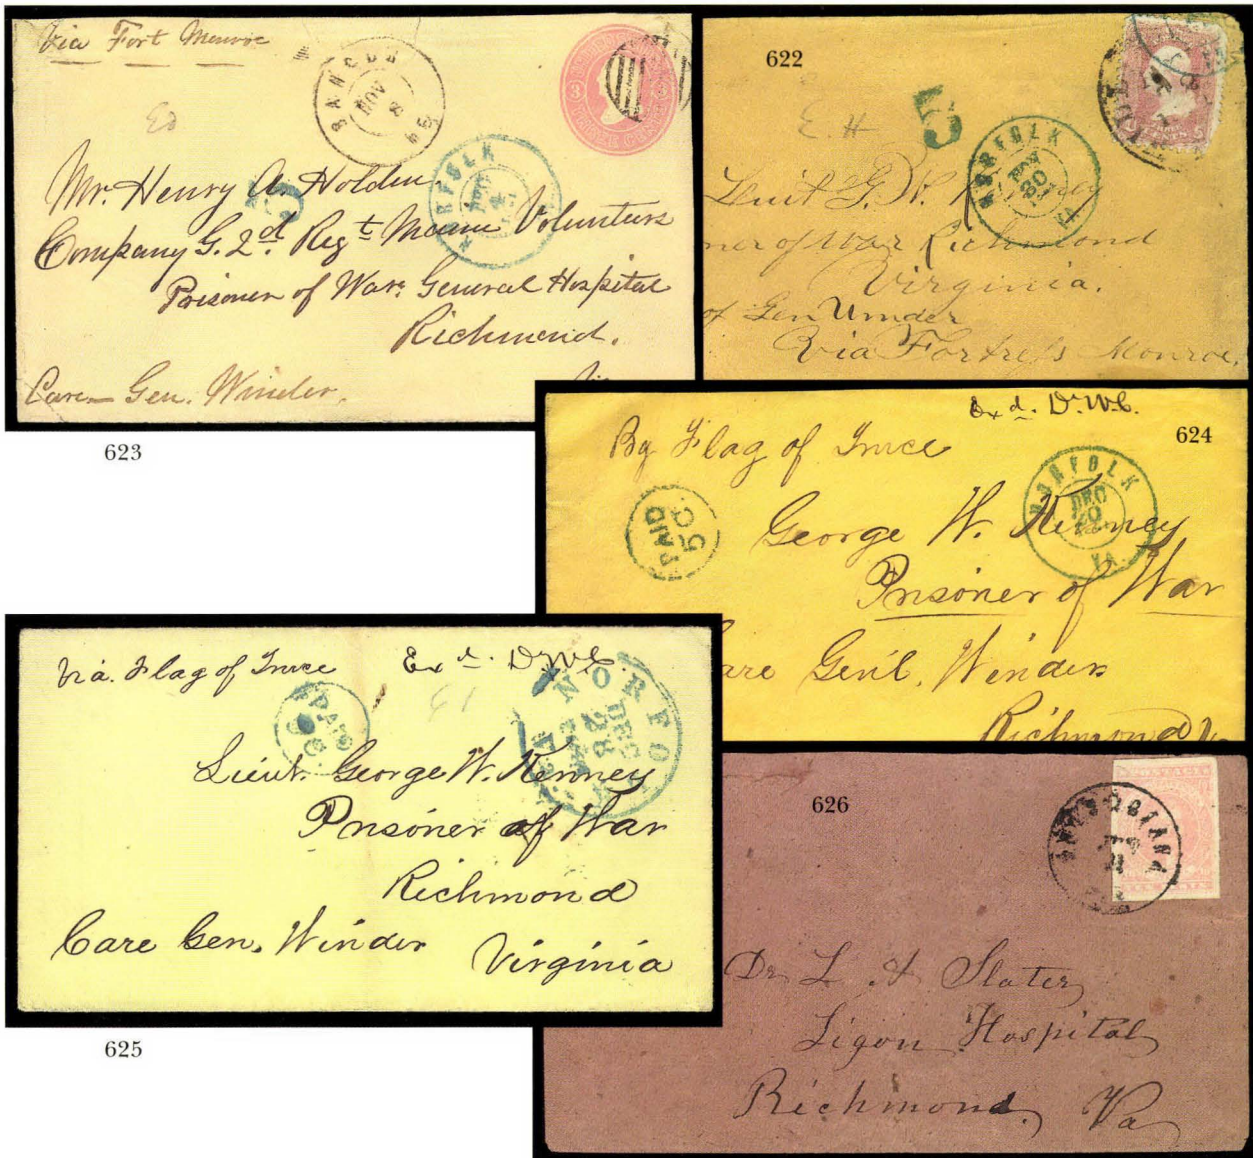 Via Fort Monroe
BANGOR
NOV
8
Ed
5
NORFOLK
Mr. Henry A. Holden
Company G. 2d Regt Maine Volunteers
Prisoner of War General Hospital
Richmond.
Care Gen. Winder.
623
622
E. H
5
NORFOLK
NOV
20
VA.
Lieut G. W. Kenney
ner of War Richmond
Virginia.
of Gen Winder
Via Fortress Monroe,
Exd. D. W. C.
624
By Flag of Truce
PAID
5 C.
NORFOLK
DEC
20
VA.
George W. Kenney
Prisoner of War
are Genl. Winder
Richmond
Via Flag of Truce Exd. D. W. C.
61
PAID
NORFO
DEC
28
Lieut. George W. Kenney
Prisoner of War
Richmond
Care Gen. Winder Virginia
625
626
Dr L. A Slater
Ligon Hospital
Richmond, Va